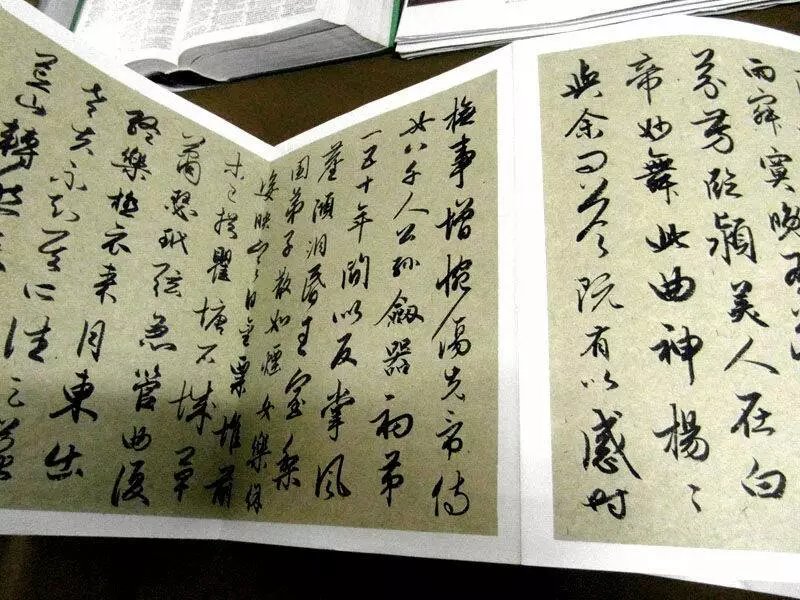 兩寂寞晚有
芬芳臨潁美人在白
帝妙舞此曲神楊〻
與余問答既有以感時
撫事增惋傷先帝侍
女八千人公孫劍器初第
一五十年間以反掌風
塵澒洞昏王室梨
園弟子散如煙女樂餘
姿映寒日金粟堆前
木已拱瞿塘石城草
蕭瑟玳弦急管曲復
終樂極哀來月東出
老夫不知其所往
荒山轉愁